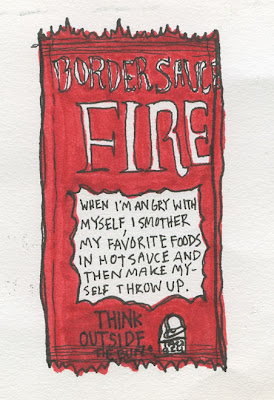 BORDER SAUCE
FIRE
WHEN I'M ANGRY WITH
MYSELF, I SMOTHER
MY FAVORITE FOODS
IN HOT SAUCE AND
THEN MAKE MY-
SELF THROW UP.
THINK
OUTSIDE
THE BUN.
TACO
BELL